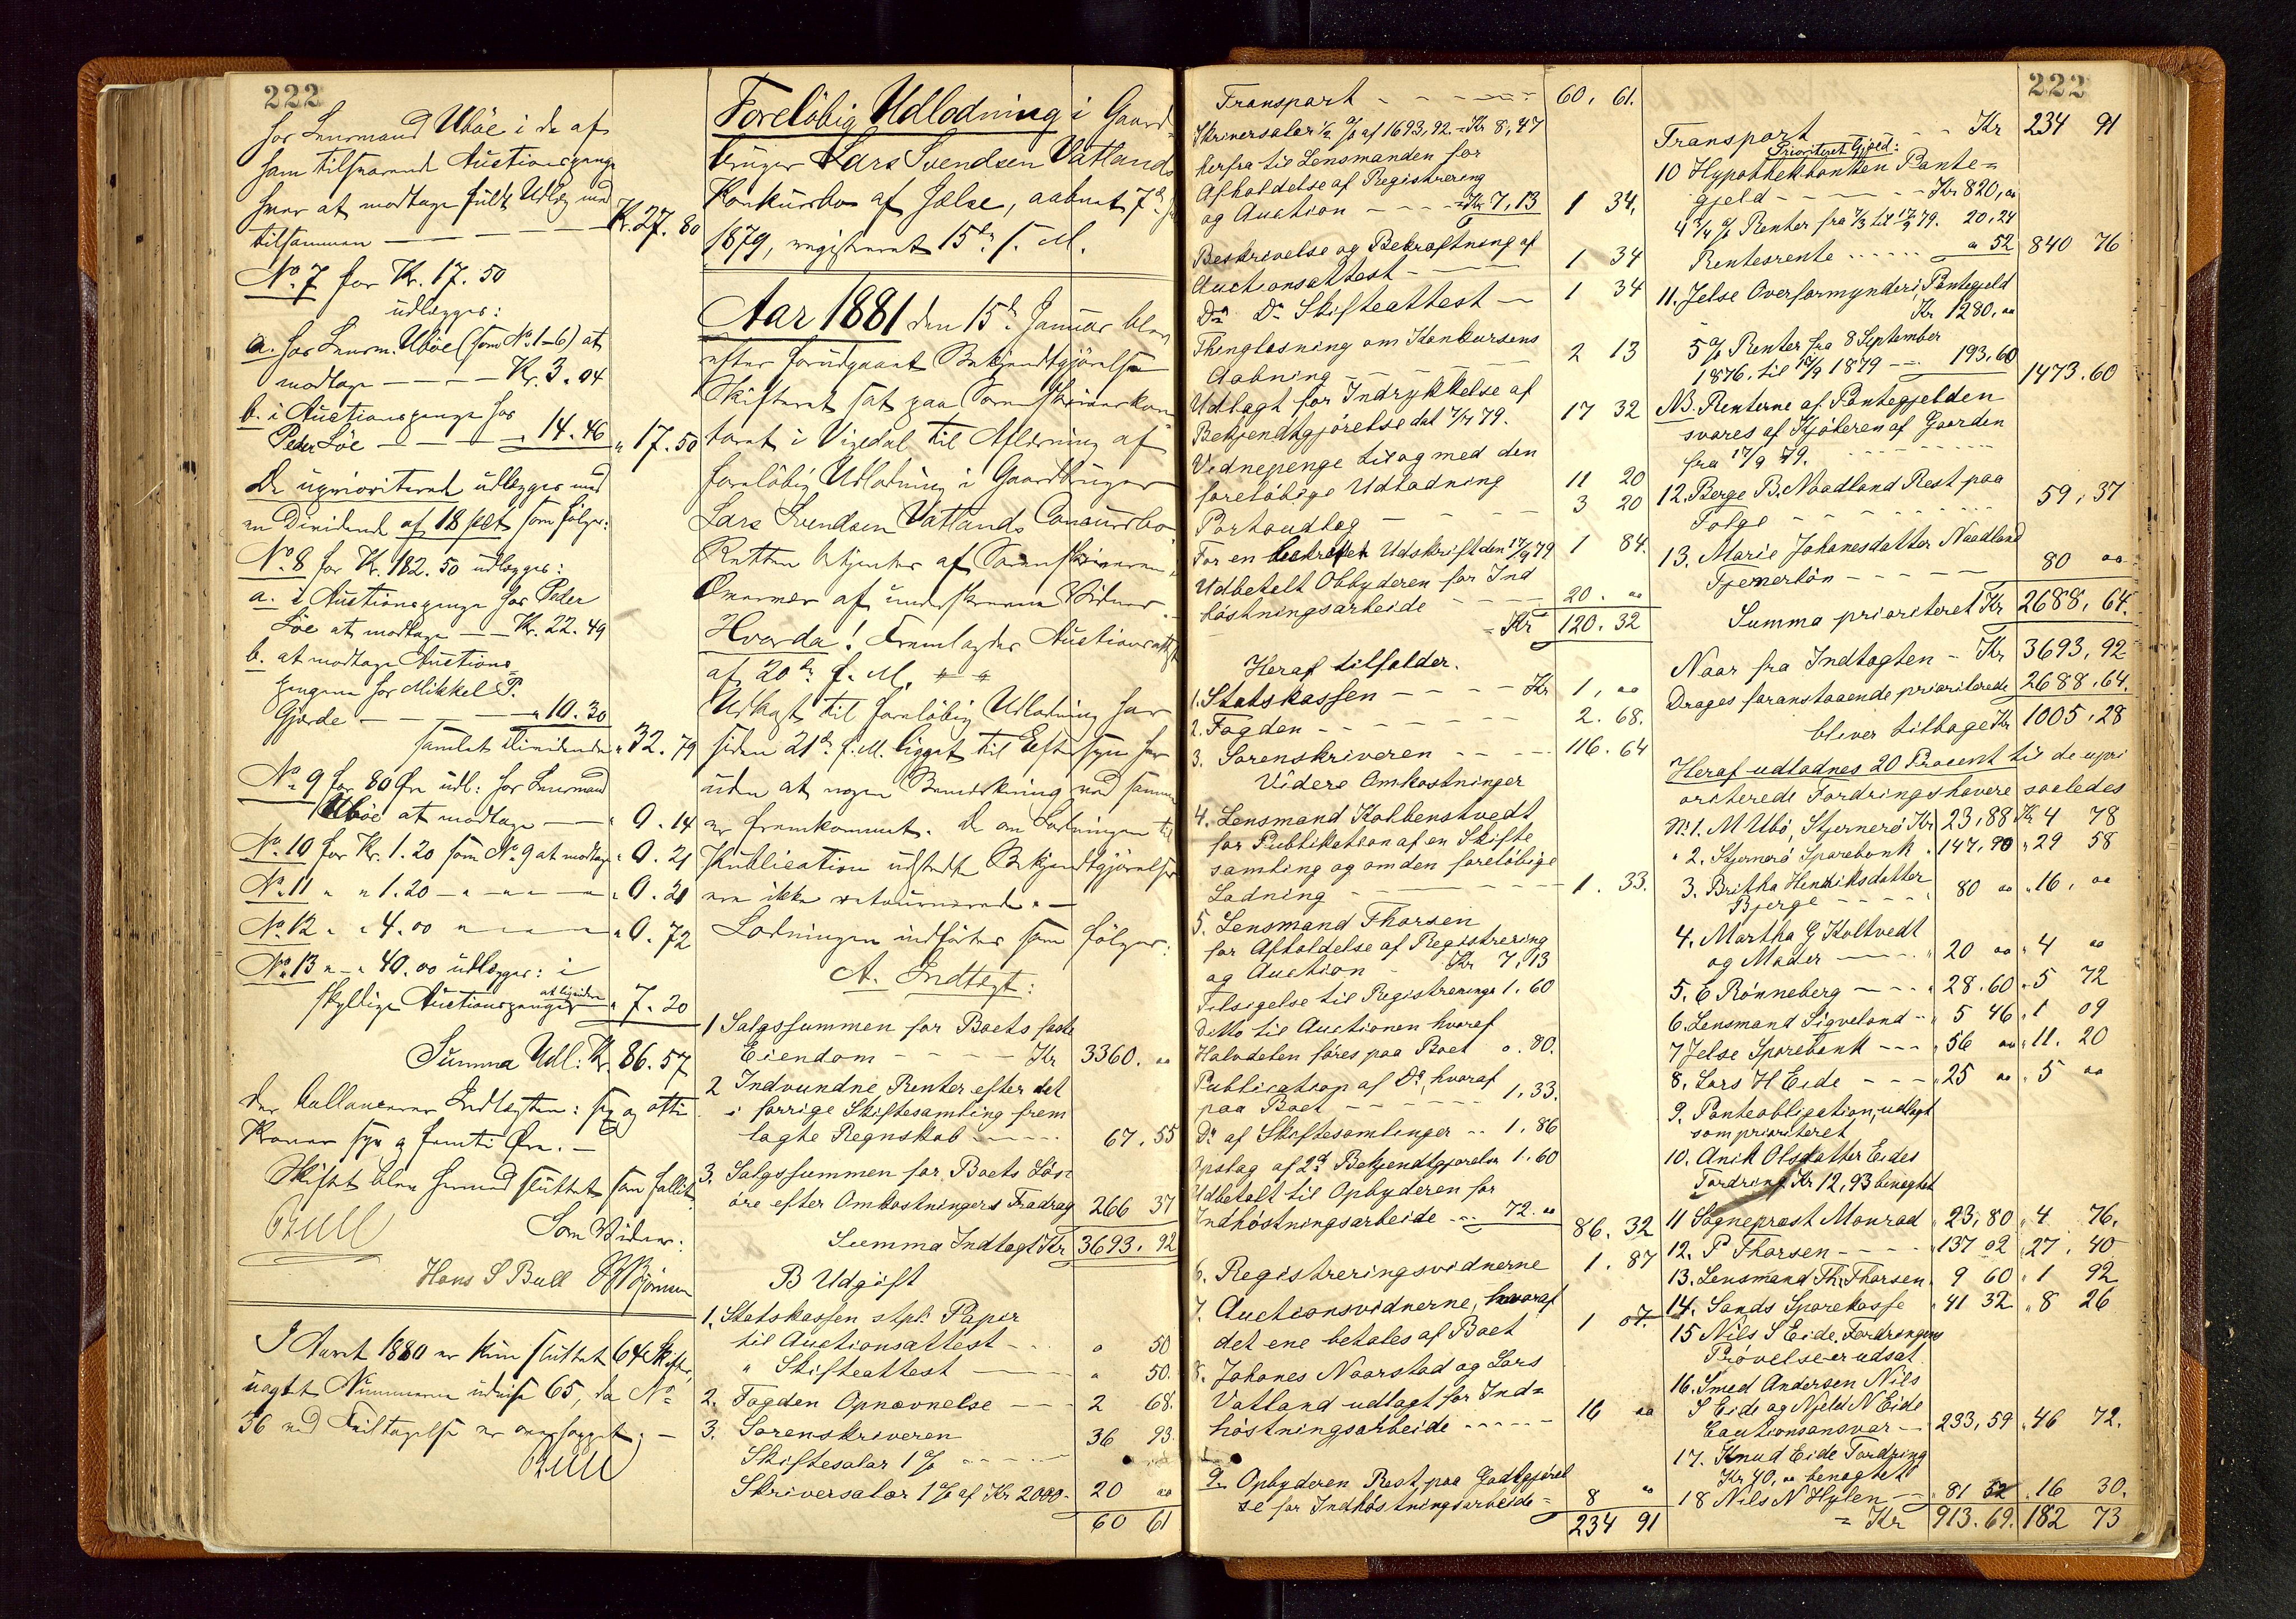 222
hos Lensmand Uböe i de af
ham tilsvarende Auctionspenge
hver at modtage fuldt Udlæg med
tilsammen — Kr. 27. 80
No 7 for Kr. 17. 50
udlægges:
a. hos Lensm. Uböe (som No 1-6) at
modtage — Kr. 3. 04
b. i Auctionspenge hos
Peder Löe — " 14. 46 " 17. 50
De uprioriterede udlægges med
en Dividende af 18 pCt som følger:
No 8 for Kr. 182. 50 udlægges:
a. i Auctionspenge hos Peder
Löe at modtage — Kr. 22. 49
b. at modtage Auctions
pengene hos Mikkel P.
Gjerde — " 10. 30
samlet Dividende " 32. 79
No 9 for 80 Øre udl: hos Lensmand
Uböe at modtage — " 0. 14
No 10 for Kr. 1. 20 som No 9 at modtage " 0. 21
No 11 " " 1. 20 — " — " 0. 21
No 12 " " 4. 00 — " — " 0. 72
No 13 " — " 40. 00 udlægges: i
skyldige Auctionspenge at liquidere " 7. 20
Summa Udl: Kr. 86. 57
der ballancerer Indtægten: sex og otti
Kroner syv og femti Øre. —
Skiftet blev hermed sluttet som fallit.
Bull
Som Vidner:
Hans S Bull
I Aaret 1880 er kun sluttet 64 Skifter,
uagtet Nummerne udvise 65, da No
36 ved Feiltagelse er oversprunget; —
Bull
Foreløbig Udlodning i Gaard-
bruger Lars Svendsen Vatlands
Konkursbo af Jelse, aabnet 7de Juli
1879, registreret 15de s. M.
Aar 1881 den 15de Januar blev
efter forudgaaet Bekjendtgjörelse
Skifteret sat paa Sorenskriverkon
toret i Vigedal til Aflevering af
foreløbig Udlodning i Gaardbruger
Lars Svendsen Vatlands Concursbo
Retten betjentes af Sorenskriveren i
Overvær af underskrevne Vidner.
Hvorda! Fremlagdes Auctionsattest
af 20de f. M.
Udkast til foreløbig Udlodning har
siden 21de f. M. ligget til Eftersyn her
uden at nogen Bemærkning ved samme
er fremkommet. De om Lodningen til
Publication udstedte Bekjendtgjörelser
ere ikke retournerede. —
Lodningen indførtes som følger:
A. Indtægt:
1 Salgssummen for Boets faste
Eiendom — Kr 3360. "
2 Indvundne Renter efter det
i forrige Skiftesamling frem
lagte Regnskab — 67. 55
3. Salgssummen for Boets Løs-
øre efter Omkostningers Fradrag 266 37
Summa Indtægt Kr 3693. 92
B Udgift
1. Statskassen stpl. Papir
til Auctionsattest — " 50
" Skifteattest — " 50.
2. Fogden Opnævnelse — 2 68.
3. Sorenskriveren
Skiftesalar 1 % — 36 93.
Skriversalar 1 % af Kr 2000 - 20 "
60 61
222
Transport — 60. 61.
Skriversalar ½ % af 1693, 92. = Kr 8, 47
herfra til Lensmanden for
Afholdelse af Registrering
og Auction — Kr 7, 13 1 34.
Beskrivelse og Bekræftning af
Auctionsattest — 1 34
Do Do Skifteattest — 1 34
Thinglæsning om Konkursens
Aabning — 2 13
Udlagt for Indrykkelse af
Bekjendtgjørelse dat 7/7 79. 17 32
Vidnepenge til og med den
foreløbige Udlodning 11 20
Portoudlæg — 3 20
For en bekræftet Udskrift den 17/9 79 1 84.
Udbetalt Opbyderen for Ind
høstningsarbeide — 20. "
= Kr 120. 32
Heraf tilfalder.
1. Statskassen — Kr 1, "
2. Fogden — 2. 68.
3. Sorenskriveren — 116. 64
Videre Omkostninger
4. Lensmand Kolbenstvedt
for Publikation af en Skifte
samling og om den foreløbige
Lodning — 1. 33.
5. Lensmand Thorsen
for Afholdelse af Registrering
og Auction - Kr 7, 13
Tilsigelse til Registreringe 1. 60
Ditto til Auctionen hvoraf
Halvdelen føres paa Boet 0. 80.
Publication af Do, hvoraf
paa Boet — 1. 33.
Do af Skiftesamlinger -- 1. 86
Opslag af 2de Bekjendtgjørelser 1. 60
Udbetalt til Opbyderen for
Indhøstningsarbeide -- 72. " 86. 32
6. Registreringsvidnerne 1. 87
7. Auctionsvidnerne, hvoraf
det ene betales af Boet 1 07.
8. Johanes Naarstad og Lars
Vatland udlagt for Ind=
høstningsarbeide — 16 "
9. Opbyderen Rest paa Godtgjørel
se for Indhøstningsarbeide = 8 "
234 91
222
Transport — Kr 234 91
Prioriteret Gjæld:
10 Hypothekbanken Pante=
gjeld — Kr 820, "
4¾ % Renter fra 7/3 til 17/9 79. 20, 24
Rentesrente — " 52 840 76
11. Jelse Overformynderi, Pantegjeld
Kr 1280, "
5 % Renter fra 8 September
1876. til 17/9 1879 — 193, 60 1473. 60
NB. Renterne af Pantegjelden
svares af Kjøberen af Gaarden
fra 17/9 79.
12. Berge B. Naadland Rest paa
Følge — 59, 37
13. Marie Johanesdatter Naadland
Tjenerløn — 80 "
Summa prioriteret Kr 2688, 64.
Naar fra Indtægten - Kr 3693, 92
Drages foranstaaende prioriterede 2688. 64.
bliver tilbage Kr 1005, 28
Heraf udlodnes 20 Procent til de upri
oriterede Fordringshavere saaledes
No 1. M Ubö, Stjernerö Kr 23, 88 Kr 4 78
" 2. Stjernerö Sparebank " 147, 90 " 29 58
3. Britha Henriksdatter
Bjerge — 80 " " 16, "
4. Martha G Koltvedt
og Moder — " 20 " " 4 "
5. E Rønneberg — " 28. 60 " 5 72
6. Lensmand Sigveland - " 5 46 " 1 09
7 Jelse Sparebank --- " 56 " " 11. 20
8. Lars H Eide - - - " 25 " " 5 "
9. Panteobligation, udlagt
som prioriteret
10. Anik Olsdatter Eides
Fordring Kr 12, 93 benægtet
11 Sogneprest Monrad " 23, 80 " 4 76.
12. P Thorsen — " 137 02 " 27. 40
13. Lensmand Th. Thorsen " 9 60 " 1 92
14. Sands Sparekasse " 41 32 " 8 26
15 Nils S Eide, Fordringens
Prøvelse er udsat
16. Smed Andersen Nils
S Eide og Njeld N Eide
Cautionsansvar — 233, 59 " 46 72.
17. Knud Eide Fordring
Kr 40, " benægtet
18 Nils N Hylen — " 81 52 " 16 30.
= Kr 913. 69. 182 73